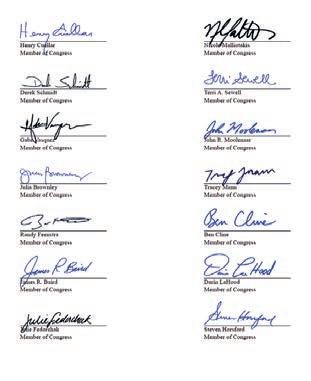 Henry Cuellar
Henry Cuellar
Member of Congress
Nicole Malliotakis
Member of Congress
Derek Schmidt
Derek Schmidt
Member of Congress
Terri Sewell
Terri A. Sewell
Member of Congress
Gabe Vasquez
Gabe Vasquez
Member of Congress
John Moolenaar
John R. Moolenaar
Member of Congress
Julia Brownley
Julia Brownley
Member of Congress
Tracey Mann
Member of Congress
Randy Feenstra
Member of Congress
Ben Cline
Ben Cline
Member of Congress
James R. Baird
James R. Baird
Member of Congress
Darin LaHood
Darin LaHood
Member of Congress
Julie Fedorchak
Julie Fedorchak
Member of Congress
Steven Horsford
Steven Horsford
Member of Congress